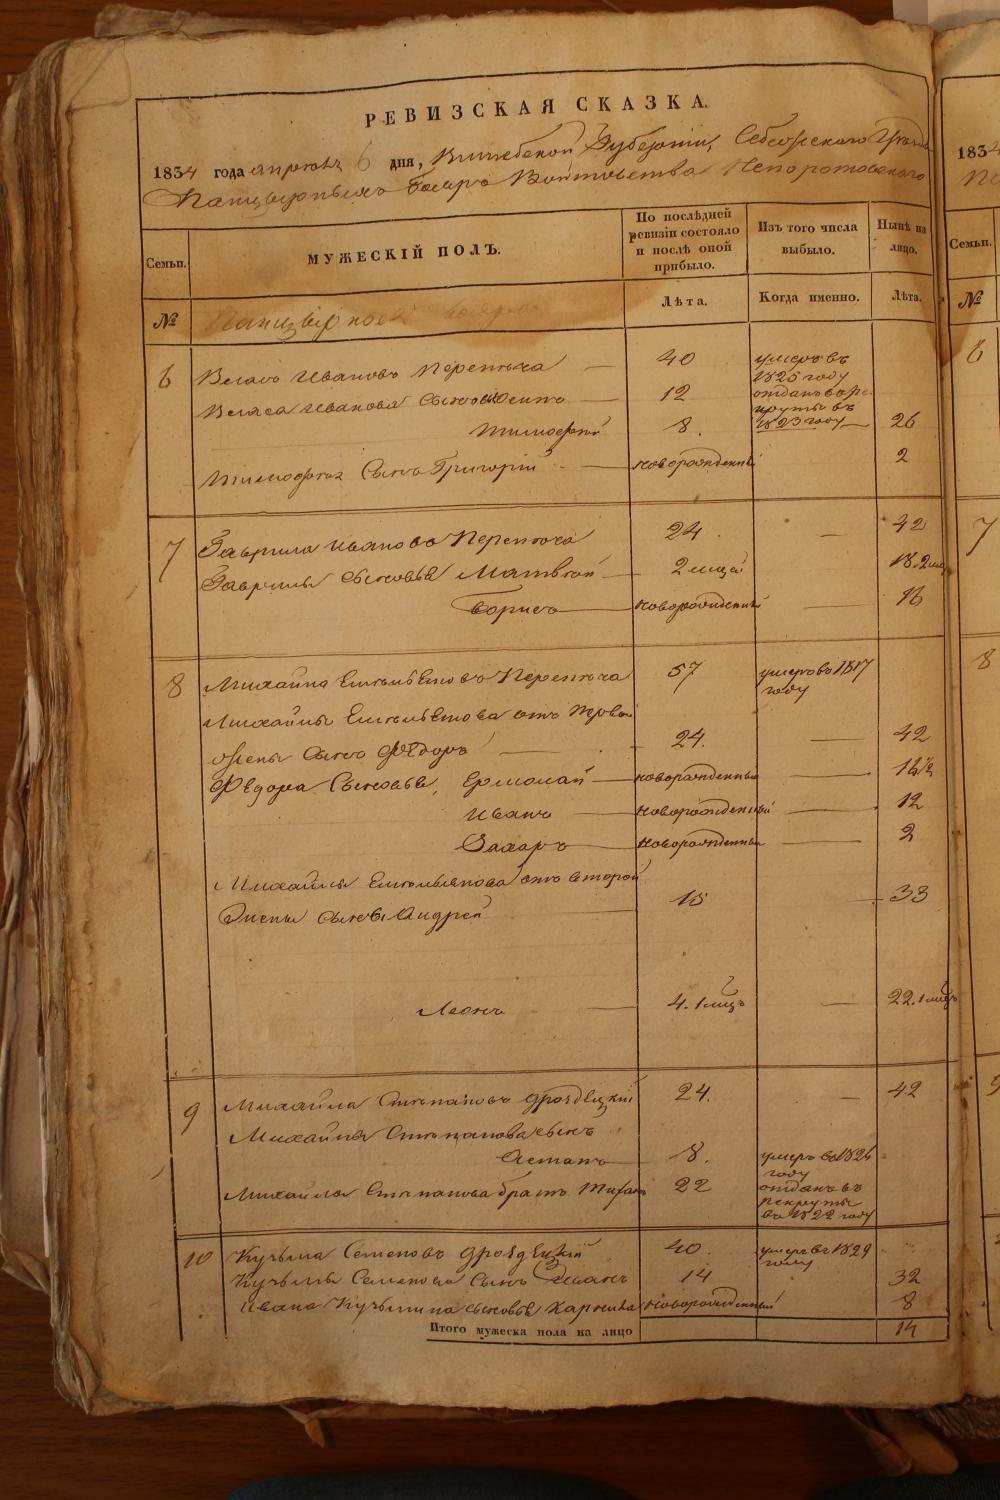 РЕВИЗСКАЯ СКАЗКА.
1834 года апреля 6 дня, Витебской Губернии, Себежского
Панцырныхъ бояръ Войтовства Непоротовскаго
Семьи. МУЖЕСКІЙ ПОЛЪ. По послѣдней ревизіи состояло и послѣ оной прибыло. Изъ того числа выбыло. Нынѣ на лицо.
№ Лѣта. Когда именно. Лѣта.
6 Иванов Перепеча — 40 умеръ въ 1825 году
Иванова — 12 отданъ въ рекруты въ 1823 году
Тимофей 8. 26
Сынъ Григорій — новорожденный 2
7 Гаврила Ивановъ Перепеча 24. — 42
Гаврилы сыновья Матвей — 2 мсца 18. 2 м
Борисъ — новорожденный — 16
8 Михайла Емельяновъ Перепеча 57 умеръ въ 1817 году
Михайлы Емельянова отъ первой
жены Сынъ Ѳедоръ — 24. — 42
Ѳедора Сыновья, Ермолай — новорожденный — 16½
Иванъ — новорожденный — 12
Захаръ — новорожденный — 2
Михайлы Емельянова отъ второй
жены Андрей 15 — 33
Леонъ — 4. 1 мсцъ — 22. 1 мсцъ
9 Михайла Степановъ Дроздецкій 24. — 42
Михайлы Степанова сынъ
— 8. умеръ въ 1826 году
Михайлы Степанова братъ 22 отданъ въ рекруты въ 1822 году
10 Кузьма Семеновъ Дроздецкій 40. умеръ въ 1829 году
Кузьмы Семенова Сынъ Иванъ 14 32
Ивана Кузьмина сыновья новорожденный 8
Итого мужеска пола на лицо 14
1834
Семьи.
№
6
7
8
9